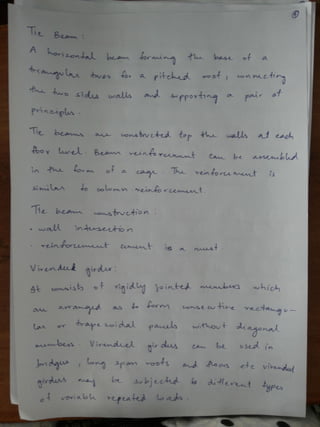 Tie Beam :
A horizontal beam forming the base of a
triangular truss for a pitched roof, connecting
the two sides walls and supporting a pair of
principles.
Tie beams are constructed top the walls at each
floor level. Beam reinforcement can be assembled
in the form of a cage. The reinforcement is
similar to column reinforcement.
Tie beam construction :
• wall intersection
• reinforcement cement is a must.
Virendeel girder :
It consists of rigidly jointed members which
are arranged as to form consecutive rectangu-
lar or trapezoidal panels without diagonal
members. Virendeel girders can be used in
bridges, long span roofs and etc virendeel
girders may be subjected to different types
of variable repeated loads.